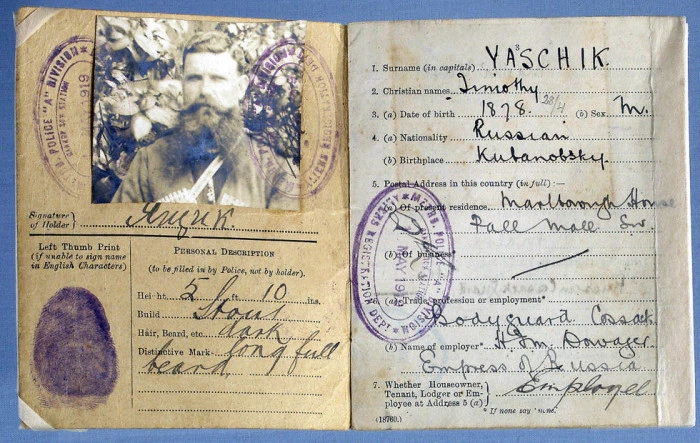 M. POLICE "A" DIVISION
1919
Signature of Holder }
Left Thumb Print
(if unable to sign name
in English Characters)
PERSONAL DESCRIPTION
(to be filled in by Police, not by holder).
Height 5 ft. 10 ins.
Build Stout
Hair, Beard, etc. dark
Distinctive Mark long full
beard
1. Surname (in capitals) YASCHIK.
2. Christian names Timothy
3. (a) Date of birth 1878. 28/4 (b) Sex M.
4. (a) Nationality Russian
(b) Birthplace Kubanobsky
5. Postal Address in this country (in full):—
(a) Of present residence. Marlborough House
Pall Mall SW.
(b) Of business*
METRO. POLICE "A" DIVISION
ALIENS REGISTRATION DEPT
MAY 191
6. (a) Trade, profession or employment*
Bodyguard Cossack
(b) Name of employer* H.I.M. Dowager
Empress of Russia
7. Whether Householder,
Tenant, Lodger or Em-
ployee at Address 5 (a) } Employee
* If none say 'none.'
(18760.)